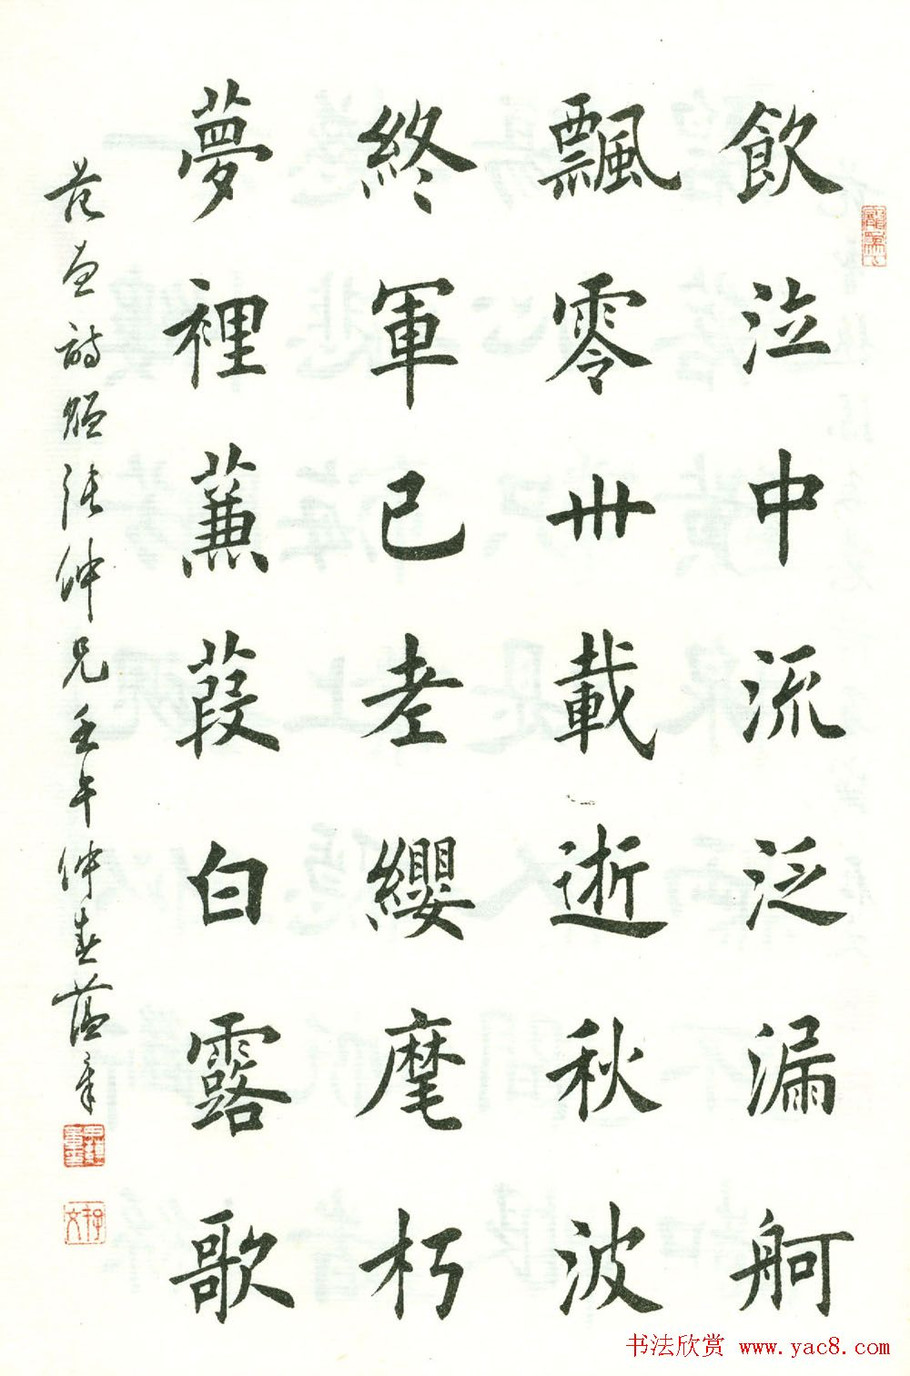 飲泣中流泛漏舸
飄零卅載逝秋波
終軍已老纓麾朽
夢裡蒹葭白露歌
詩贈張仲兄壬午仲春蘊章
书法欣赏 www.yac8.com